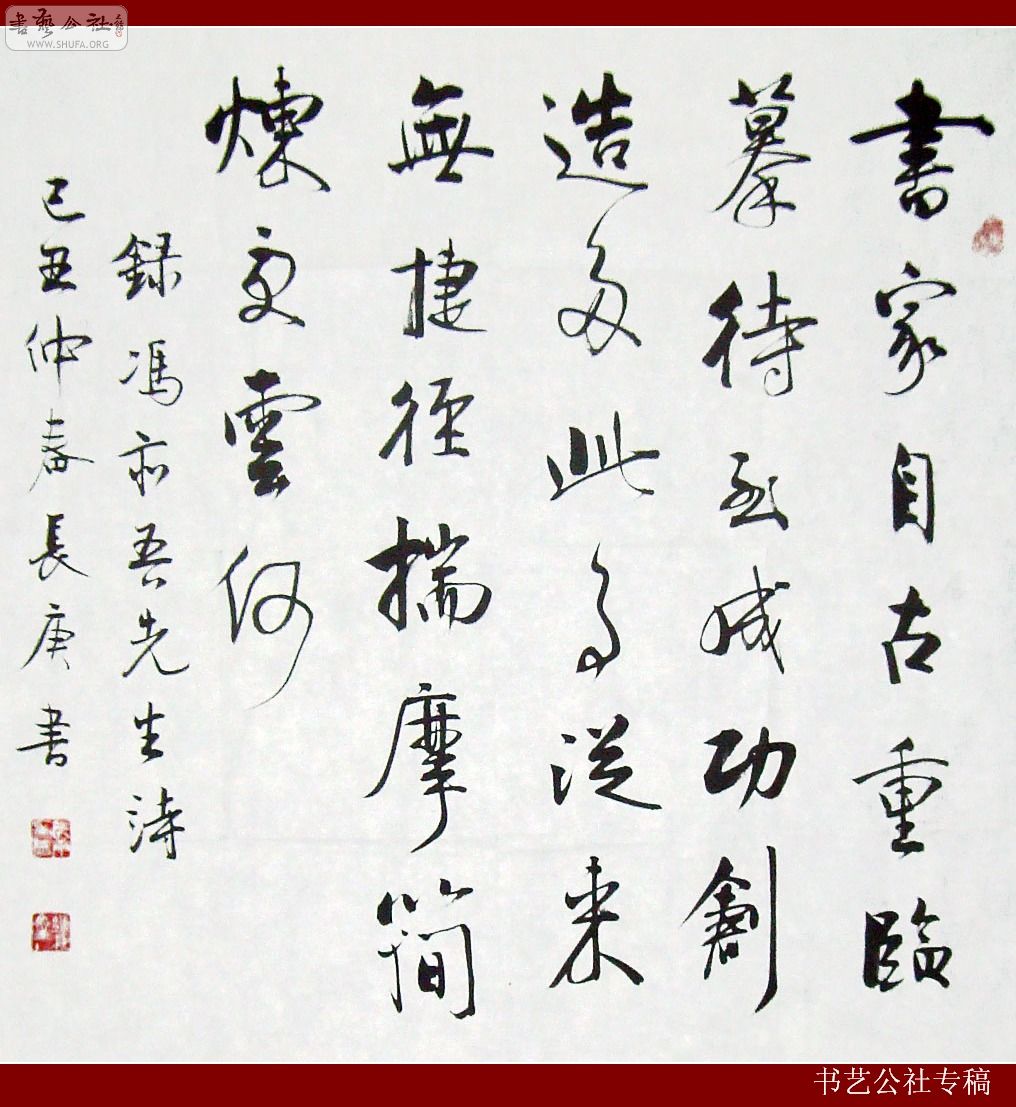 書艺公社
WWW.SHUFA.ORG
書家自古重臨
摹待到成功創
造多此事從来
無捷徑揣摩簡
煉更雲何
錄馮亦吾先生詩
己丑仲春長庚書
书艺公社专稿